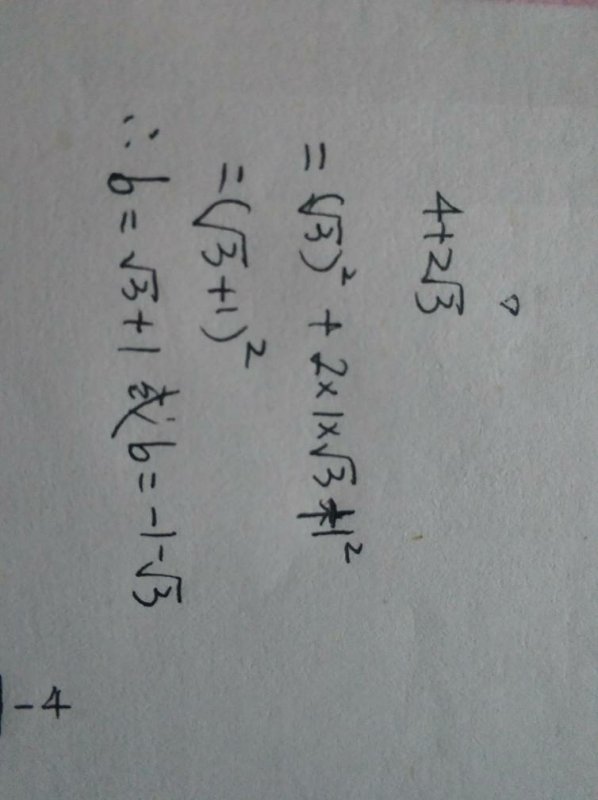 4+2√3
=(√3)²+2×1×√3+1²
=(√3+1)²
∴b=√3+1或b=-1-√3
-4